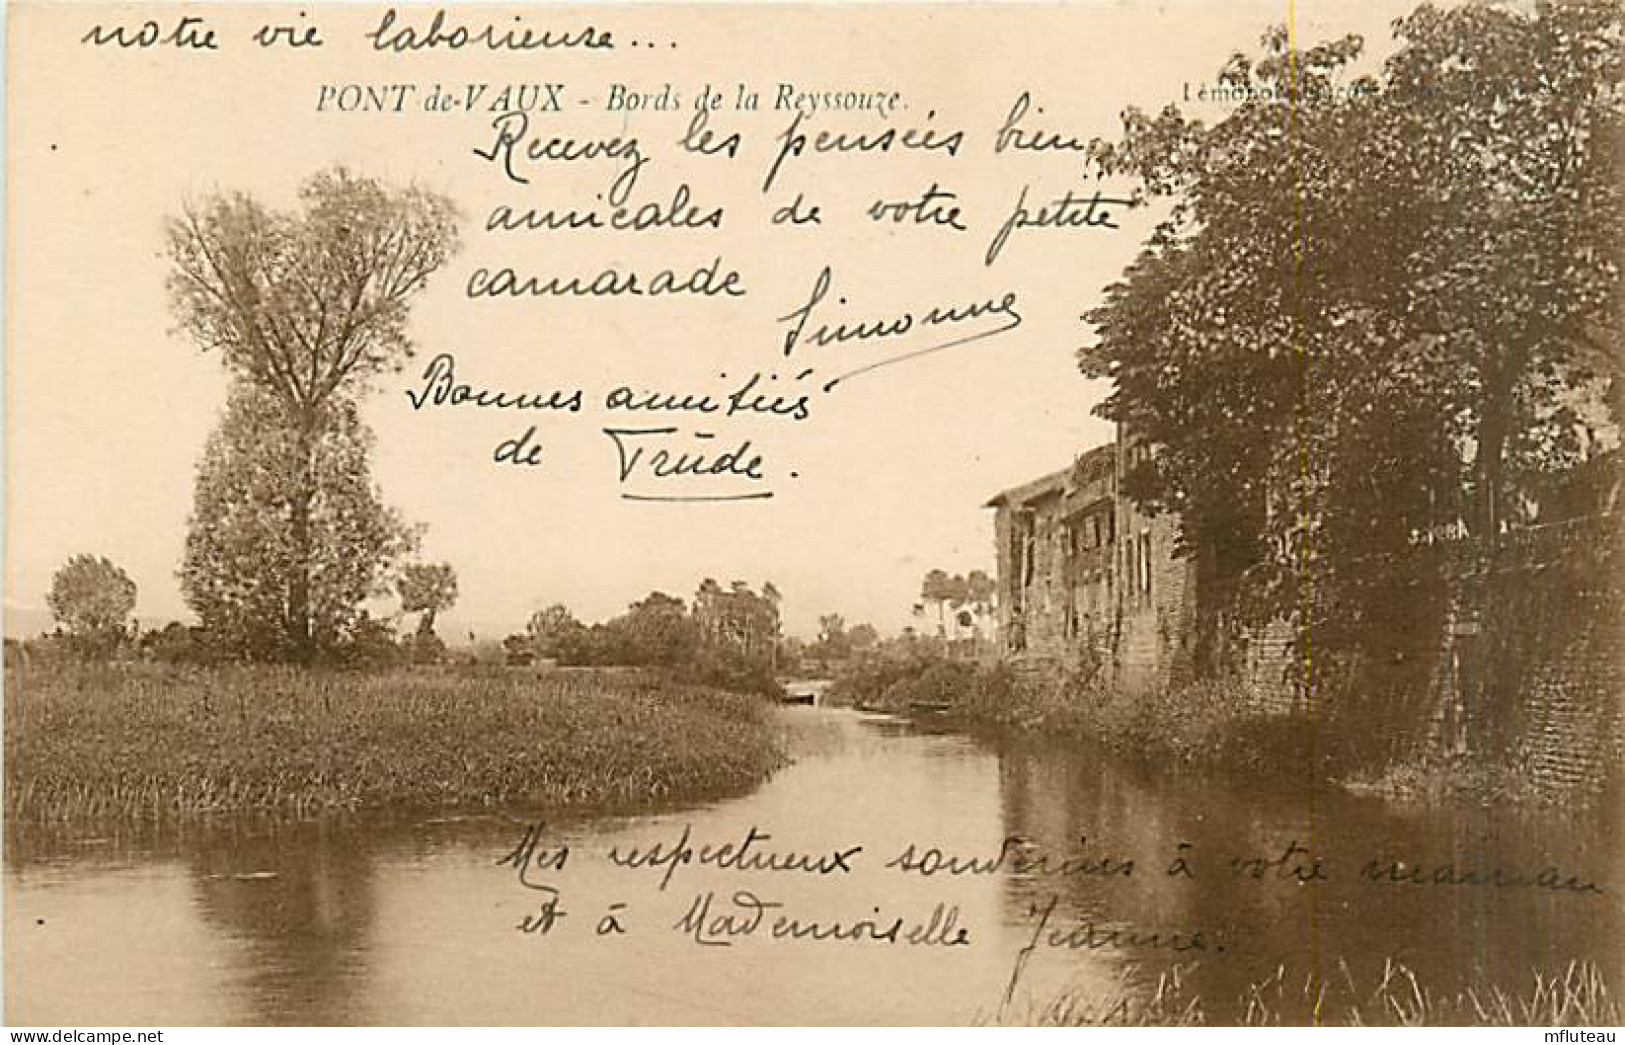 notre vie laborieuse...
PONT-de-VAUX - Bords de la Reyssouze.
Recevez les pensées bien
amicales de votre petite
camarade
Simonne
Bonnes amitiés
de Trüde.
Mes respectueux souvenirs à votre maman
et à Mademoiselle Jeanne.
mfluteau